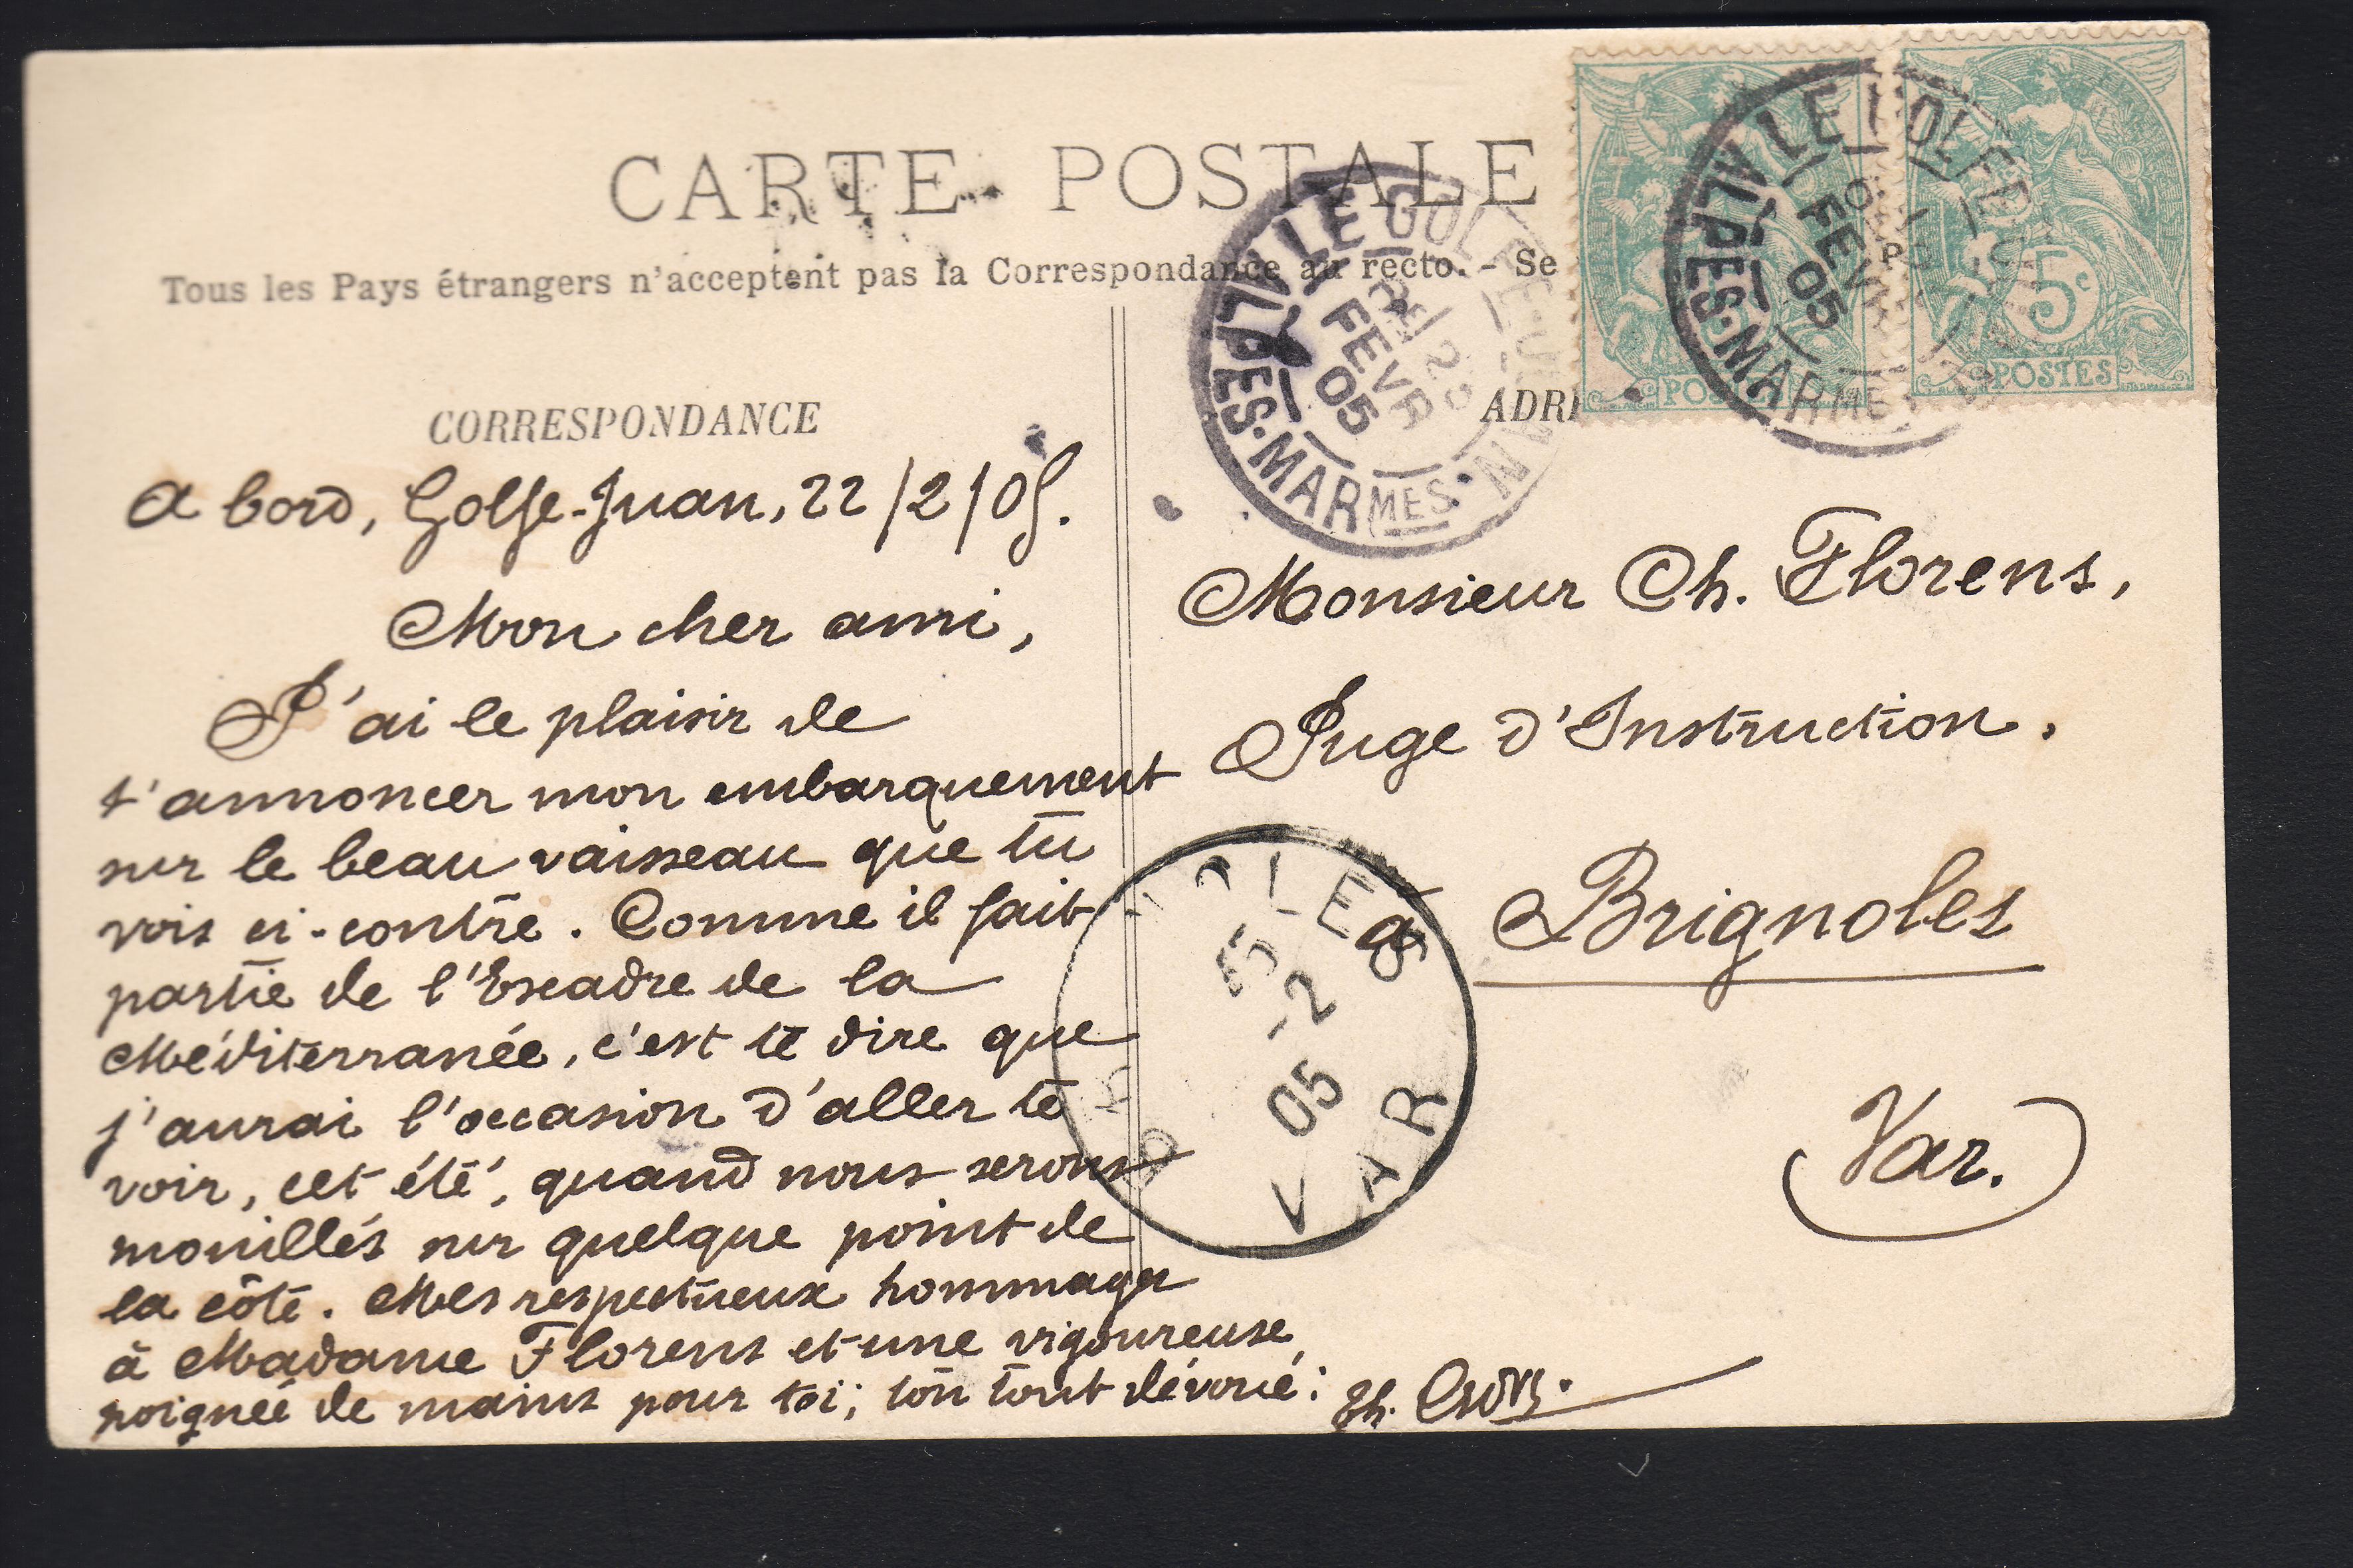 CARTE POSTALE
Tous les Pays étrangers n'acceptent pas la Correspondance au recto. - Se
CORRESPONDANCE
ADR
A bord, Golfe-Juan, 22/2/05.
Mon cher ami,
J'ai le plaisir de
t'annoncer mon embarquement
sur le beau vaisseau que tu
vois ci-contre. Comme il fait
partie de l'Escadre de la
Méditerranée, c'est te dire que
j'aurai l'occasion d'aller te
voir, cet été, quand nous serons
mouillés sur quelque point de
la côte. Mes respectueux hommages
à Madame Florens et une vigoureuse
poignée de mains pour toi; ton tout dévoué:
Monsieur Ch. Florens,
Juge d'Instruction.
à Brignoles
Var.
LE GOLFE-JUAN
ALPES-MARMES
FEVR
05
LE GOLFE-JUAN
ALPES-MARMES
FEVR
05
5c
POSTES
POSTES
BRIGNOLES
-2
05
VAR